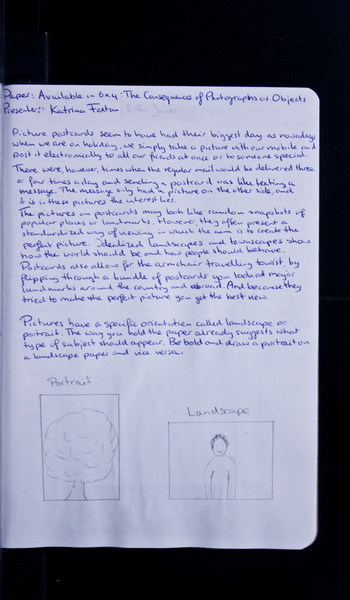 Paper: Available in Gray: The Consequences of Photographs as Objects
Presenter: Katrina
Picture postcards seem to have had their biggest day as nowadays
when we are on holiday, we simply take a picture with our mobile and
post it electronically to all our friends at once or to someone special.
There were, however, times when the regular mail would be delivered three
or four times a day and sending a postcard was like texting a
message. The message only had a picture on the other side, and
it is in these pictures the interest lies.
The pictures on postcards may look like random snapshots of
popular places or landmarks. However they often present a
standardized way of viewing in which the aim is to create the
perfect picture. Idealized landscapes and townscapes show
how the world should be and how people should behave.
Postcards also allow for the armchair travelling tourist, by
flipping through a bundle of postcards you look at major
landmarks around the country and abroad. And because they
tried to make the perfect picture you get the best view.
Pictures have a specific orientation called landscape or
portrait. The way you hold the paper already suggests what
type of subject should appear. Be bold and draw a portrait on
a landscape paper and vice versa.
Portrait
Landscape